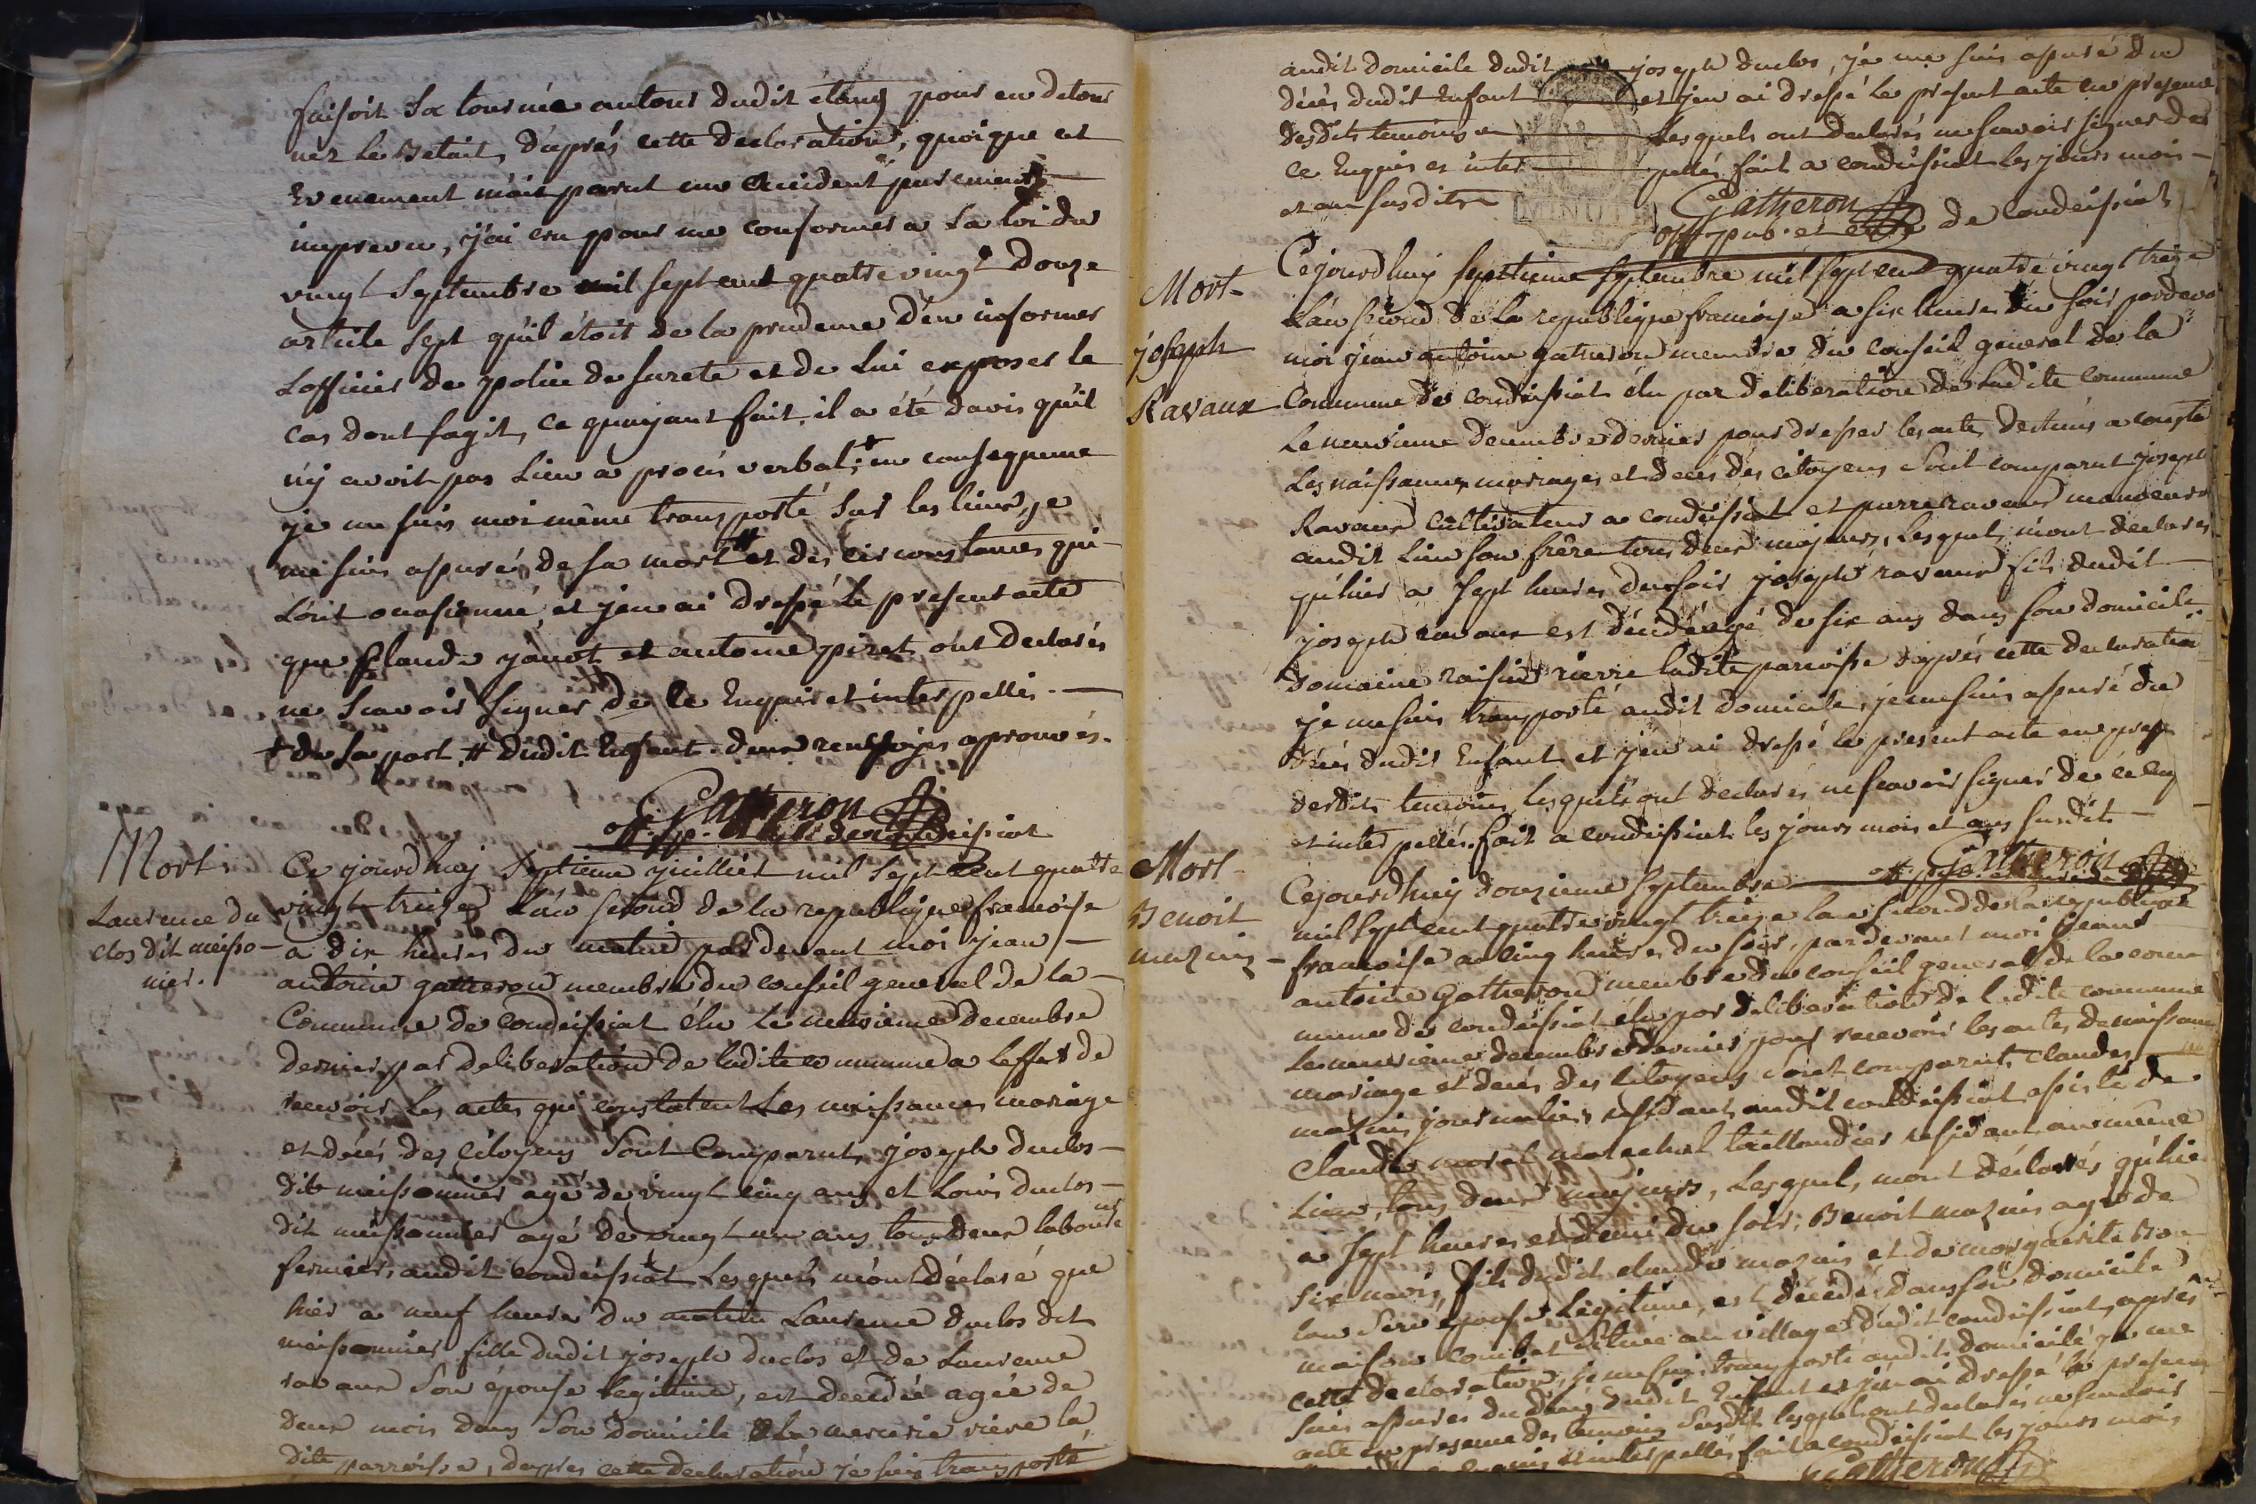 faisoit sa tournée autour dudit étang pour en detour
ner le Betail, d'après cette declaration, quoique cet
Evenement m'ait parut un accident purement
imprevu, j'ai cru pour me conformer a la loi du
vingt Septembre mil sept cent quatre vingt Douze
article sept qu'il étoit de la prudence d'en informer
L'officier de police de surete et de lui exposer le
cas dont sagit, ce qu'ayant fait, il a été davis qu'il
n'y avoit pas Lieu a procès verbal, + en consequence
je me suis moi même transporté sur les lieux, je
me suis assuré de sa mort # et des circonstances qui
L'ont occasionné, et j'en ai dressé le present acte
que Claude janot et antoine piret ont declarés
ne Scavoir signer de ce Enquis et interpellés.
+ de sa part. # Dudit Enfant. deux renvois aprouvés.
Gatheron
off. p. de condeissiat
Mort
Laurence du
clos dit meisso-
nier.
Ce jourd'huy Septieme juilliet mil Sept Cent quatre
vingt treize L'an second de la republique francoise
a dix heures du matin par devant moi jean
antoine gatheron membre du conseil general de la
Commune de condeissiat élu le neuvieme Decembre
dernier par deliberation de ladite commune a Leffet de
recevoir les actes qui constatent Les naissances mariage
et décés des Citoyens Sont Comparut, joseph duclos
dit meissonnier agé de vingt cinq ans et Louis duclos
dit meissonnier agé de vingt un ans tous Deux laboureurs
fermiers audit condeissiat Lesquels m'ont déclaré que
hier a neuf heures du matin Laurence duclos dit
meissonnier fille dudit joseph duclos et de Laurence
ravaux Son épouse legitime, est decedée agée de
deux mois dans Son domicile a La mercerie riere la
dite parroisse, dapres cette declaration je suis transporté
audit domicile dudit joseph duclos, je me suis assuré du
décés dudit Enfant et jen ai dressé le present acte en presence
desdits temoins Lesquels ont declarés ne scavoir signer de
ce Enquis et inter pellés fait a condeissiat les jours mois
et an susdits
MINUTE
Gatheron
off. pub. de condeissiat
Mort
joseph
Ravaux
Cejourd'huy septieme Septembre mil sept cent quatre vingt treize
L'an second de la republique francoise a six heures du soir pardeva
moi jean antoine gatheron membre du conseil general de la
Commune de condeissiat élu par deliberation de ladite commune
Le neuvieme decembre dernier pour dresser les actes destinés a consta
Les naissances mariages et deces des citoyens Sont comparut joseph
Ravaux cultivateur a condeissiat et pierre ravaux manoeuvre
audit Lieu son frère tous deux majeurs, Lesquels m'ont declarés
qu'hier a sept heures du soir joseph ravaux fils dudit
joseph ravaux est décédé agé de six ans dans son domicile
domaine raisin rierre ladite paroisse daprés cette declaration
je me suis transporté audit domicile, je me suis assuré du
décés dudit Enfant et j'en ai dressé le present acte en prese
desdits temoins lesquels ont declarés ne scavoir signer de ce Enq
et interpellés. fait a condeissiat les jours mois et ans susdits
Gatheron
Mort
Benoit
mazuis
Cejourd'huy Douzieme Septembre
mil sept cent quatre vingt treize lan second de la republique
francoise a cinq heures du soir, pardevant moi jean
antoine Gatheron membre du conseil general de la com
mune de condeissiat élu par deliberation de ladite commune
Le neuvieme decembre dernier pour recevoir les actes de naissance
mariage et decés des Citoyens sont comparut, Claude
mazuis journalier residant audit condeissiat assisté de
Claude morel marechal taillandier residant au même
Lieu, tous deux majeurs, Lesquels m'ont déclarés qu'hie
a sept heures et demi du soir, Benoit mazuis agé de
six mois, fils dudit claude mazuis et de marguerite
son épouse Legitime, est décédé dans son domicile
maison combet située au village dudit condeissiat, apres
cette declaration, je me suis transporté audit domicile, je me
suis assuré du décés dudit Enfant et j'en ai dressé le present
acte en presence des temoins susdits lesquels ont declarés ne scavoir
Enquis et interpellés fait a condeissiat les jours mois
Gatheron